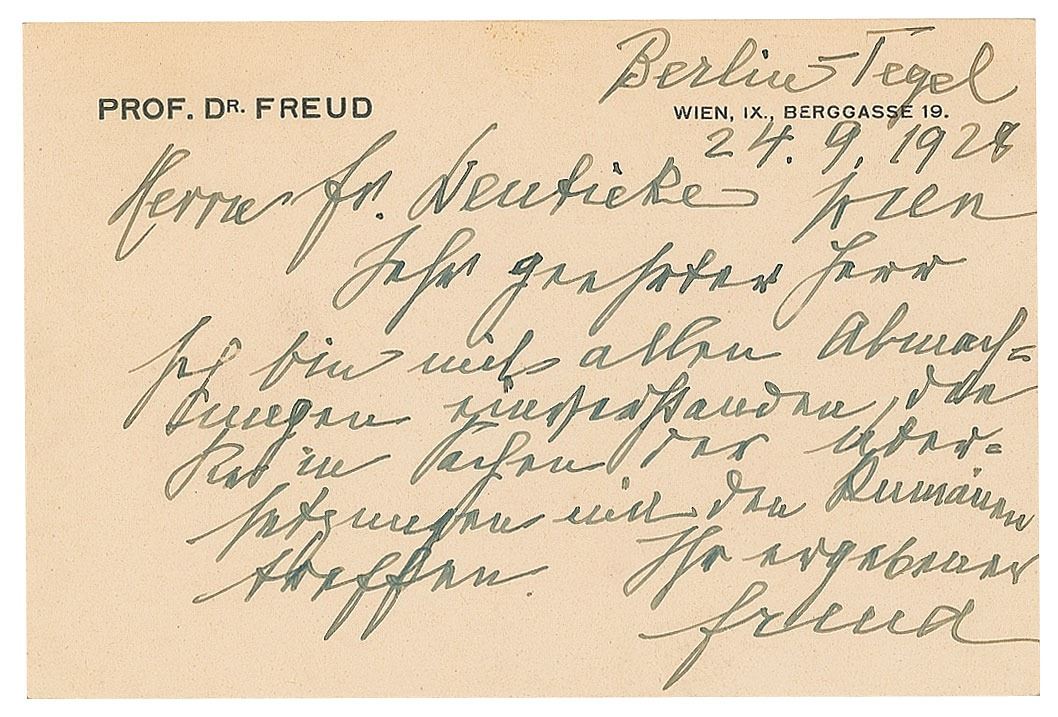 Berlin-Tegel
PROF. DR. FREUD
WIEN, IX., BERGGASSE 19.
24. 9. 1928
Herrn Fr. Deuticke Wien
Sehr geehrter Herr
Ich bin mit allen Abmach=
ungen einverstanden, die
Sie in Sachen der Über=
setzungen mit den Rumänen
treffen. Ihr ergebener
Freud